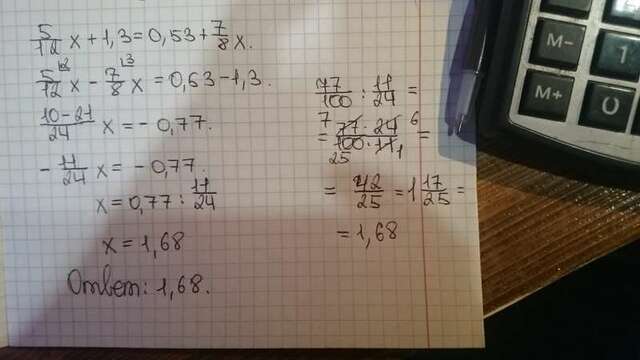 5/12 x + 1,3 = 0,53 + 7/8 x.
5/12 x - 7/8 x = 0,53 - 1,3.
10-21/24 x = -0,77.
- 11/24 x = -0,77.
x = 0,77 : 11/24
x = 1,68
Ответ: 1,68.
77/100 : 11/24 =
= 77 · 24/100 · 11 =
7 6
25 1
= 42/25 = 1 17/25 =
= 1,68
M-
M+
1
0